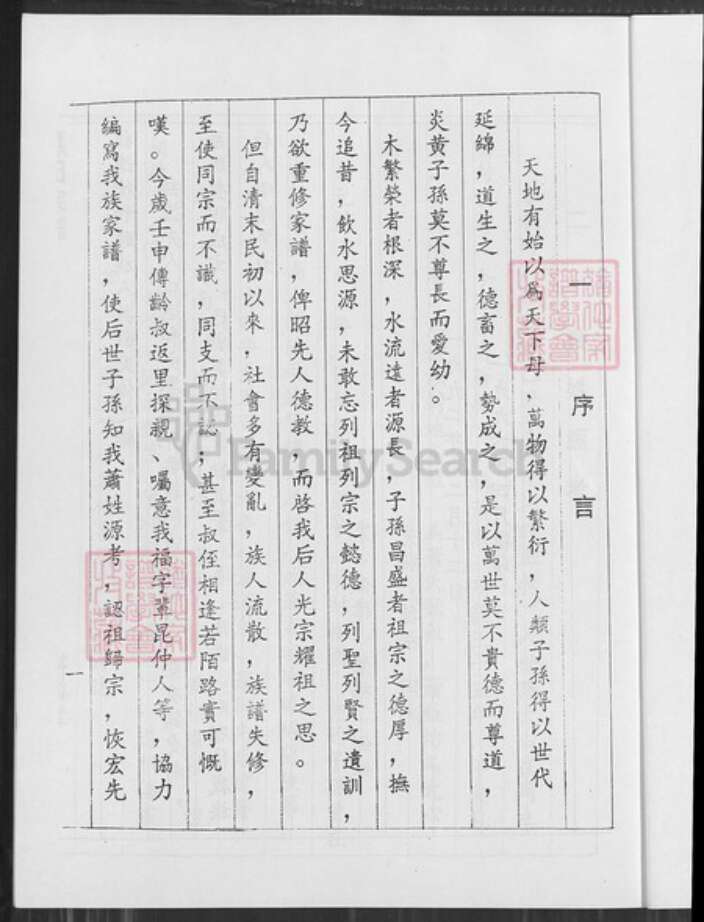 一 序言
天地有始以爲天下母，萬物得以繁衍，人類子孫得以世代
延綿，道生之，德畜之，勢成之，是以萬世莫不貴德而尊道，
炎黃子孫莫不尊長而愛幼。
木繁榮者根深，水流遠者源長，子孫昌盛者祖宗之德厚，撫
今追昔，飲水思源，未敢忘列祖列宗之懿德，列聖列賢之遺訓，
乃欲重修家譜，俾昭先人德教，而啓我后人光宗耀祖之思。
但自清末民初以來，社會多有變亂，族人流散，族譜失修，
至使同宗而不識，同支而不認；甚至叔侄相逢若陌路實可慨
嘆。今歲壬申傳齡叔返里探親、囑意我福字輩昆仲人等，協力
編寫我族家譜，使后世子孫知我蕭姓源考，認祖歸宗，恢宏先
一
FamilySearch